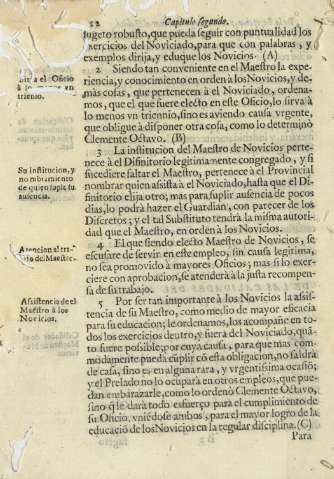 52 Capitulo segundo.
sugeto robusto, que pueda seguir con puntualidad los
exercicios del Noviciado, para que con palabras, y
exemplos dirija, y eduque los Novicios. (A)
2 Siendo tan conveniente en el Maestro la expe-
riencia, y conocimiento en orden à los Novicios, y de-
màs cosas, que pertenecen à el Noviciado, ordena-
mos, que el que fuere electo en este Oficio, lo sirva à
lo menos vn triennio, sino es aviendo causa vrgente,
que obligue à disponer otra cosa, como lo determinò
Clemente Octavo. (B)
3 La institucion del Maestro de Novicios perte-
nece à el Difinitorio legitimamente congregado, y si
sucediere faltar el Maestro, pertenece à el Provincial
nombrar quien assista à el Noviciado, hasta que el Di-
finitorio elija otro; mas para suplir ausencia de pocos
dias, lo podrà hazer el Guardian, con parecer de los
Discretos; y el tal Substituto tendrà la misma autori-
dad que el Maestro, en orden à los Novicios.
4 El que siendo electo Maestro de Novicios, se
escusare de servir en este empleo, sin causa legitima,
no sea promovido à mayores Oficios; mas si lo exer-
ciere con aprobacion, se atenderà à la justa recompen-
sa de su trabajo.
5 Por ser tan importante à los Novicios la assis-
tencia de su Maestro, como medio de mayor eficacia
para su educacion; le ordenamos, los acompañe en to-
dos los exercicios dentro, y fuera del Noviciado, quã-
to fuere possible; por cuya causa, para que mas co-
modamente pueda cũplir cõ esta obligacion, no saldrà
de casa, sino es en alguna rara, y vrgentissima ocasiõ;
y el Prelado no lo ocuparà en otros empleos, que pue-
dan embarazarle, como lo ordenò Clemente Octavo,
sino q̃ le darà todo esfuerço para el cumplimiento de
su Oficio, vniendose ambos, para el mayor logro de la
educaciõ de los Novicios en la regular disciplina. (C)
Para
el Oficio
à lo menos vn
triennio.
Su institucion, y
nombramiento
de quien supla su
ausencia.
Atencion al tra-
bajo del Maestro.
Assistencia del
Maestro à los
Novicios.